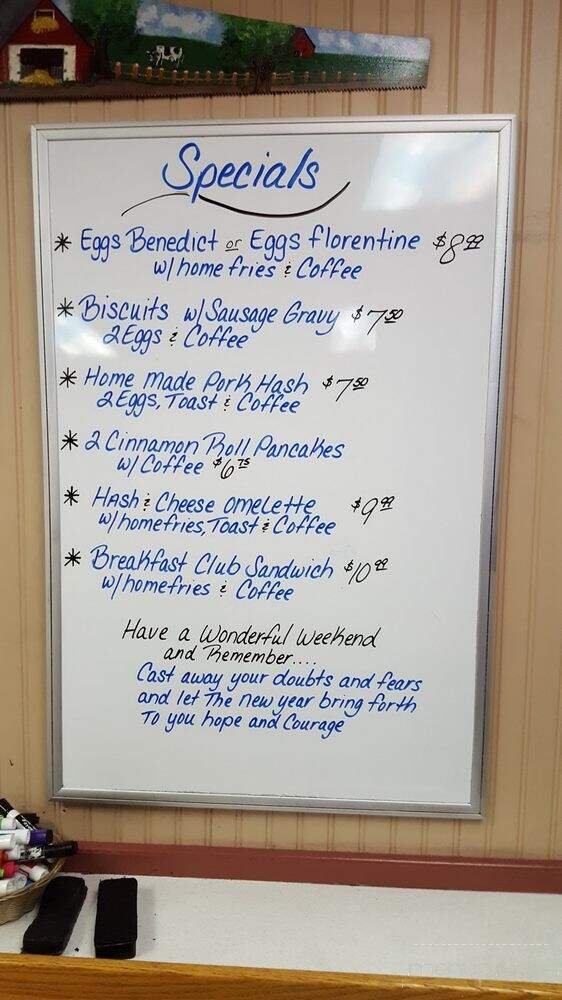 Specials
* Eggs Benedict or Eggs florentine $8.99
w/ home fries & Coffee
* Biscuits w/ Sausage Gravy $7.50
2 Eggs & Coffee
* Home made Pork Hash $7.50
2 Eggs, Toast & Coffee
* 2 Cinnamon Roll Pancakes
w/ Coffee $6.75
* Hash & Cheese omelette $9.99
w/ homefries, Toast & Coffee
* Breakfast Club Sandwich $10.99
w/ homefries & Coffee
Have a Wonderful Weekend
and Remember....
Cast away your doubts and fears
and let The new year bring forth
To you hope and Courage